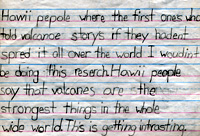 Hawii pepole where the first ones who
told volcanoe storys if they hadent
spred it all over the world I woudint
be doing this reserch. Hawii people
say that volcanes are the
strongest things in the whole
wide world. This is getting intrasting.